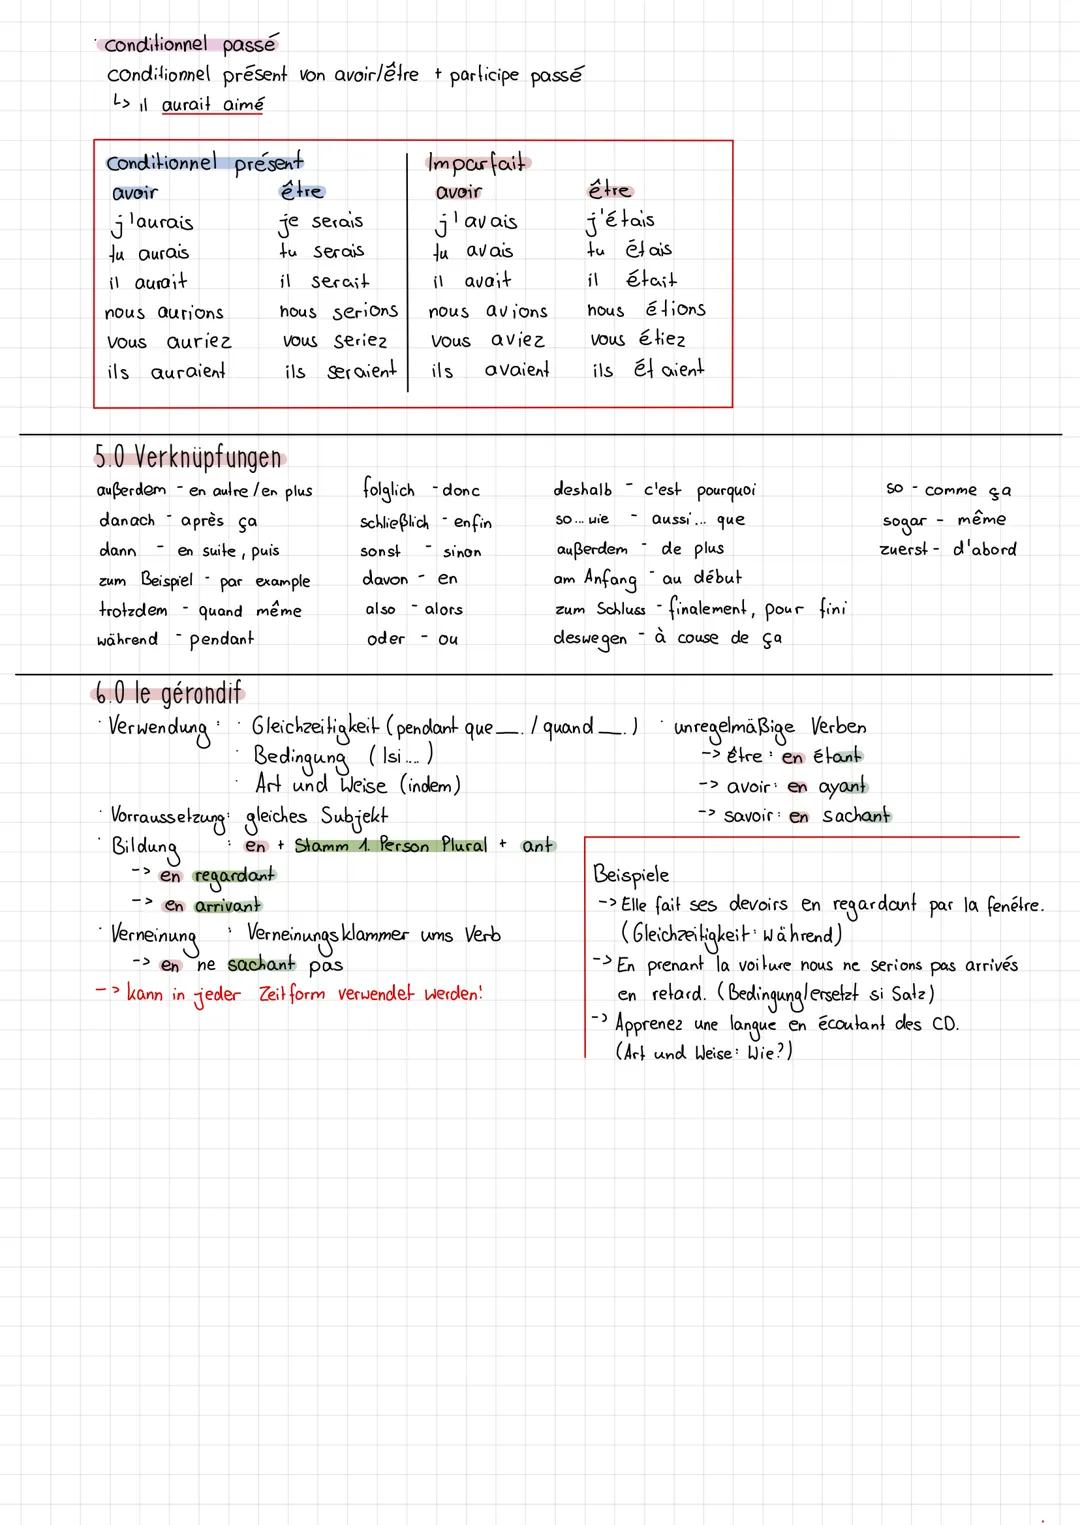 · conditionnel passé
conditionnel présent von avoir/être + participe passé
↳ il aurait aimé
conditionnel présent
avoir être
j'aurais je serais
tu aurais tu serais
il aurait il serait
nous aurions nous serions
vous auriez vous seriez
ils auraient ils seraient
Imparfait
avoir être
j'avais j'étais
tu avais tu étais
il avait il était
nous avions nous étions
vous aviez vous étiez
ils avaient ils étaient
5.0 Verknüpfungen
außerdem - en autre / en plus
danach - après ça
dann - en suite, puis
zum Beispiel - par example
trotzdem - quand même
während - pendant
folglich - donc
schließlich - enfin
sonst - sinon
davon - en
also - alors
oder - ou
deshalb - c'est pourquoi
so... wie - aussi... que
außerdem - de plus
am Anfang - au début
zum Schluss - finalement, pour fini
deswegen - à couse de ça
so - comme ça
sogar - même
zuerst - d'abord
6.0 le gérondif
· Verwendung: · Gleichzeitigkeit (pendant que __. / quand __.)
· Bedingung (Isi....)
· Art und Weise (indem)
· Vorraussetzung: gleiches Subjekt
· Bildung : en + Stamm 1. Person Plural + ant
-> en regardant
-> en arrivant
· Verneinung : Verneinungsklammer ums Verb
-> en ne sachant pas
-> kann in jeder Zeitform verwendet werden!
· unregelmäßige Verben
-> être: en étant
-> avoir: en ayant
-> savoir: en sachant
Beispiele
-> Elle fait ses devoirs en regardant par la fenêtre.
(Gleichzeitigkeit: während)
-> En prenant la voiture nous ne serions pas arrivés
en retard. (Bedingung/ersetzt si Satz)
-> Apprenez une langue en écoutant des CD.
(Art und Weise: Wie?)